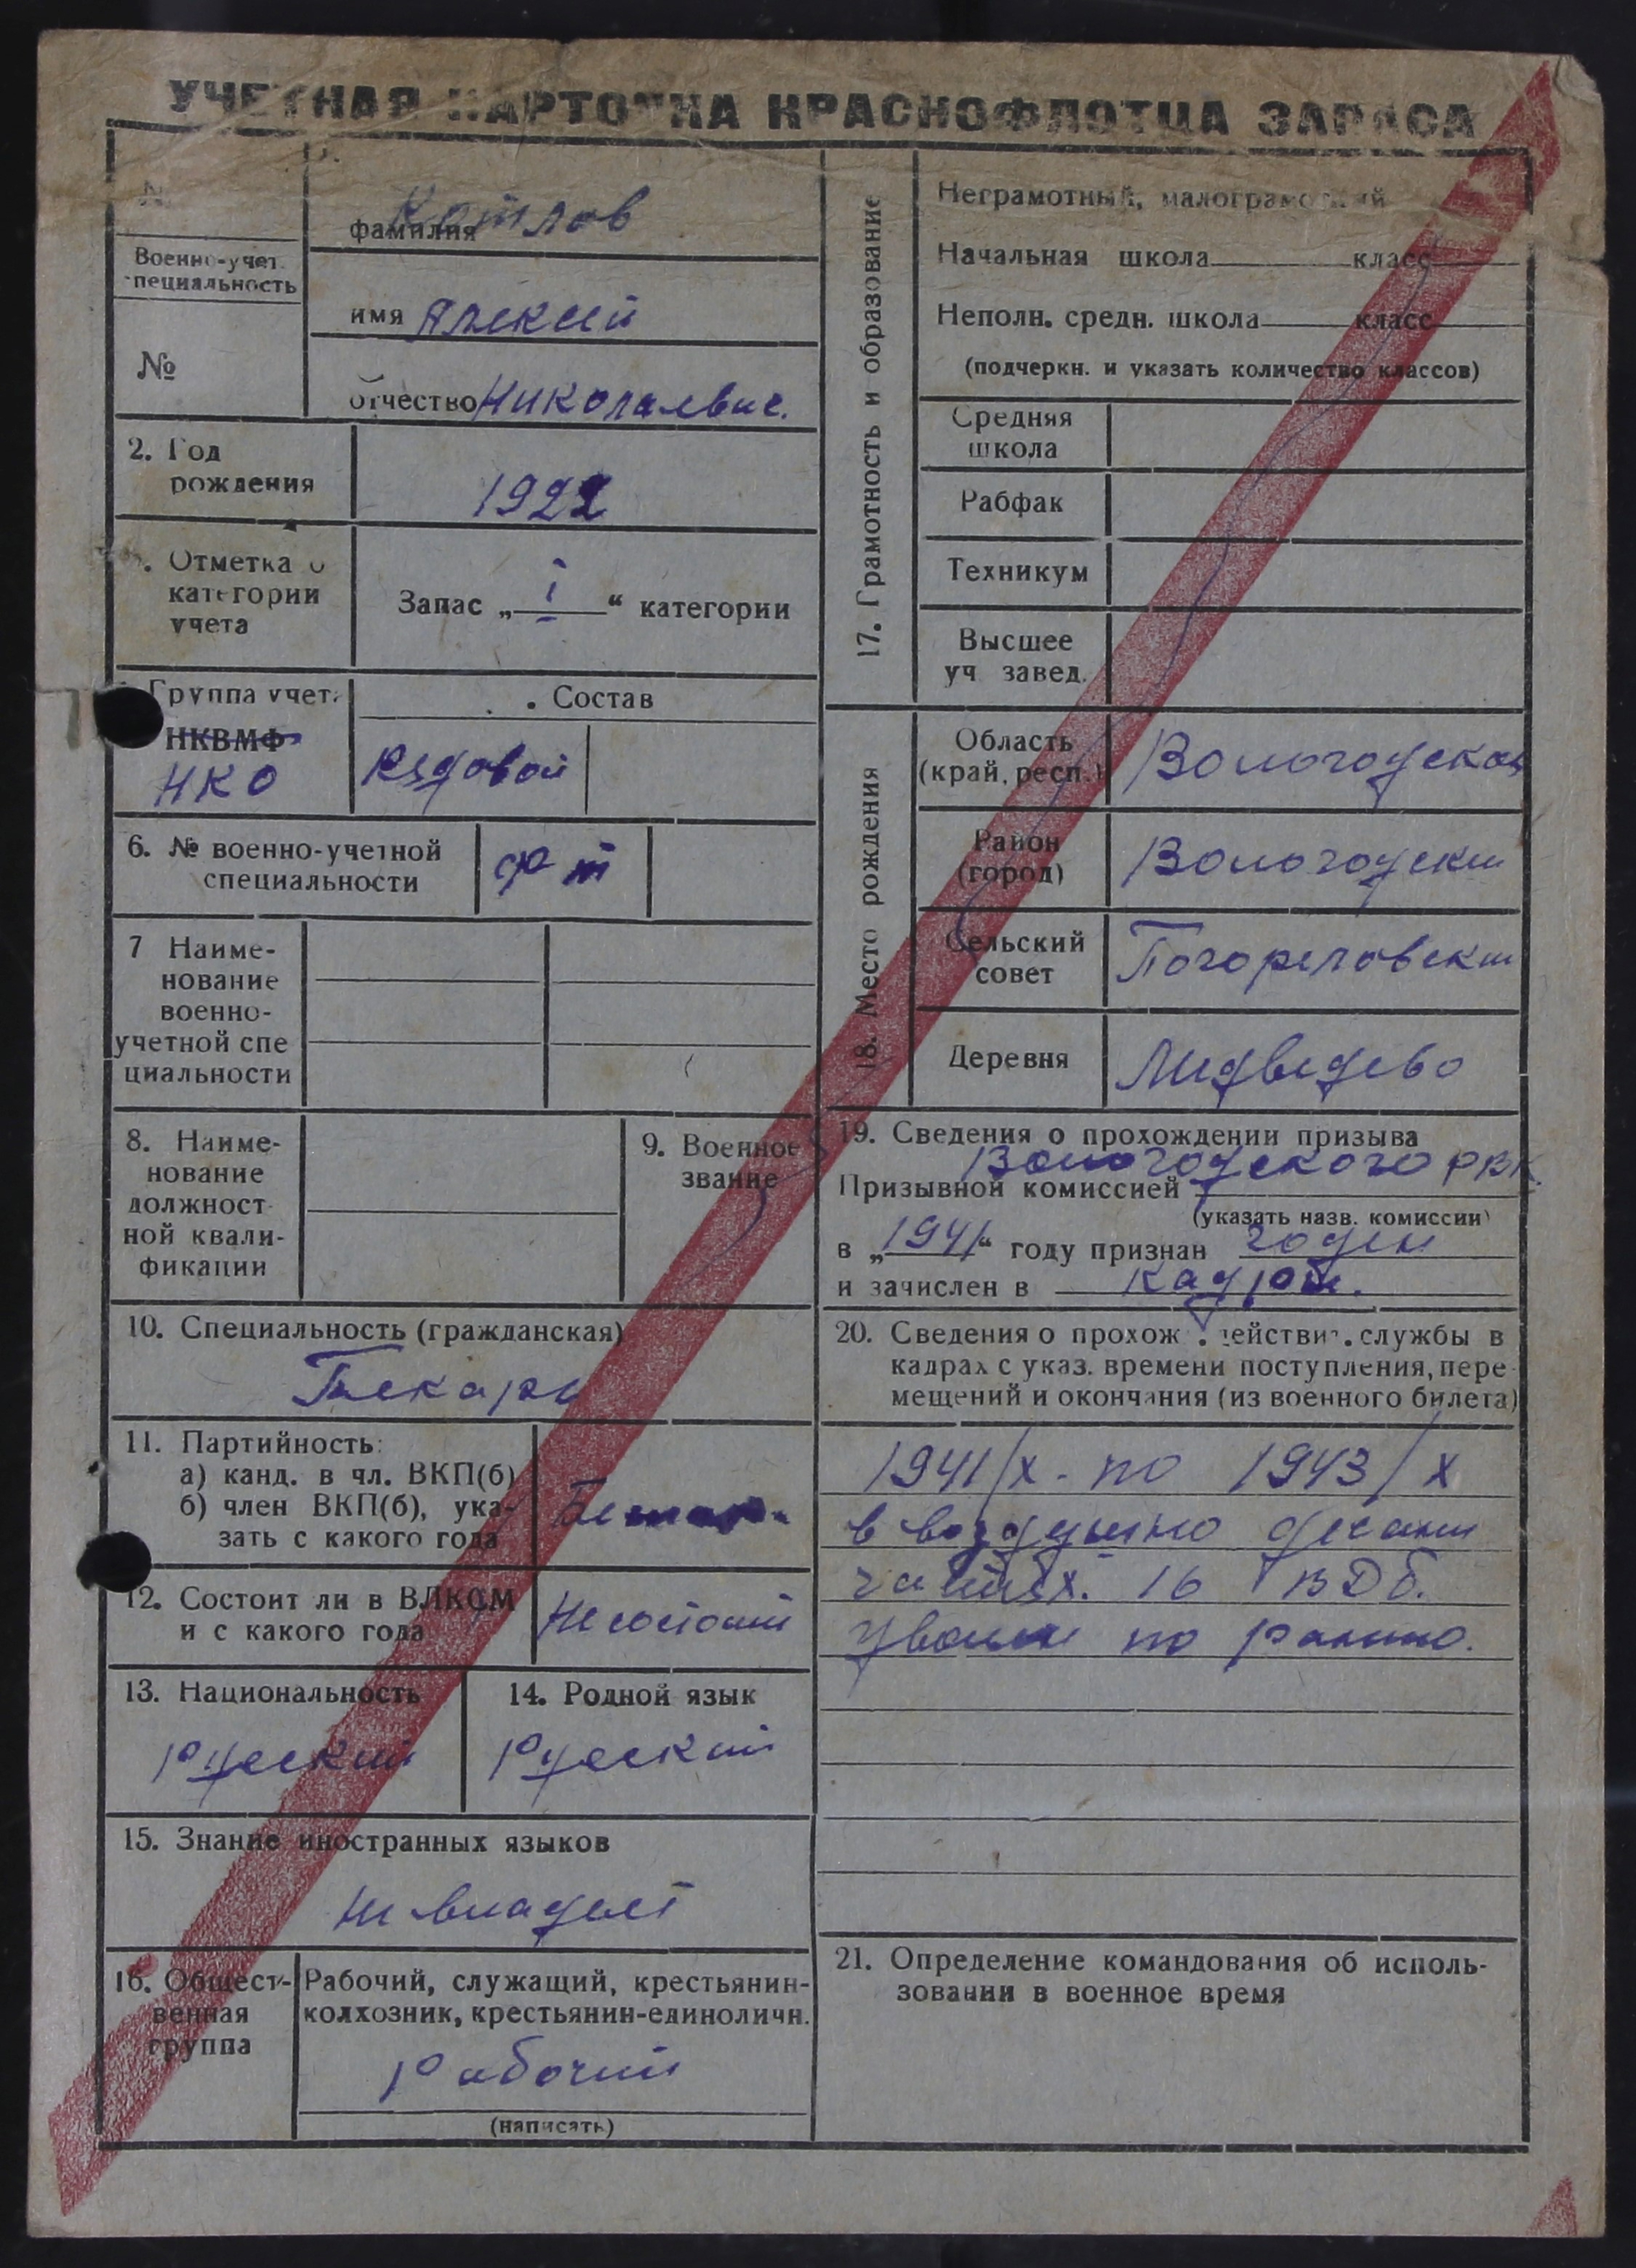 УЧЕТНАЯ КАРТОЧКА КРАСНОФЛОТЦА ЗАПАСА
Военно-учет.
специальность
№
фамилия Котлов
имя Алексей
отчество Николаевич.
2. Год
рождения
1922
Отметка о
категории
учета
Запас „ I “ категории
Группа учета
НКВМФ
НКО
Состав
Рядовой
6. № военно-учетной
специальности
7 Наиме-
нование
военно-
учетной спе
циальности
8. Наиме-
нование
должност
ной квали-
фикации
9. Военное
звание
10. Специальность (гражданская)
Пекарь
11. Партийность:
а) канд. в чл. ВКП(б)
б) член ВКП(б), ука-
зать с какого года
12. Состоит ли в ВЛКСМ
и с какого года
Не состоит
13. Национальность
русский
14. Родной язык
русский
15. Знание иностранных языков
Не владеет
16. Общест-
венная
группа
Рабочий, служащий, крестьянин-
колхозник, крестьянин-единоличн.
Рабочий
(написать)
17. Грамотность и образование
Неграмотный, малограмотный
Начальная школа класс
Неполн. средн. школа класс
(подчеркн. и указать количество классов)
Средняя
школа
Рабфак
Техникум
Высшее
уч завед.
18. Место рождения
Область
(край, респ.)
Вологодская
Район
(город)
Вологодски
Сельский
совет
Погореловски
Деревня
Медведево
19. Сведения о прохождении призыва
Вологодского РВК.
Призывной комиссией
(указать назв. комиссии)
в „1941“ году признан годен
и зачислен в кадры.
20. Сведения о прохож. действит. службы в
кадрах с указ. времени поступления, пере-
мещений и окончания (из военного билета)
1941/X - по 1943/X
в воздушно десант
частях. 16 ВДб.
уволен по ранению.
21. Определение командования об исполь-
зовании в военное время